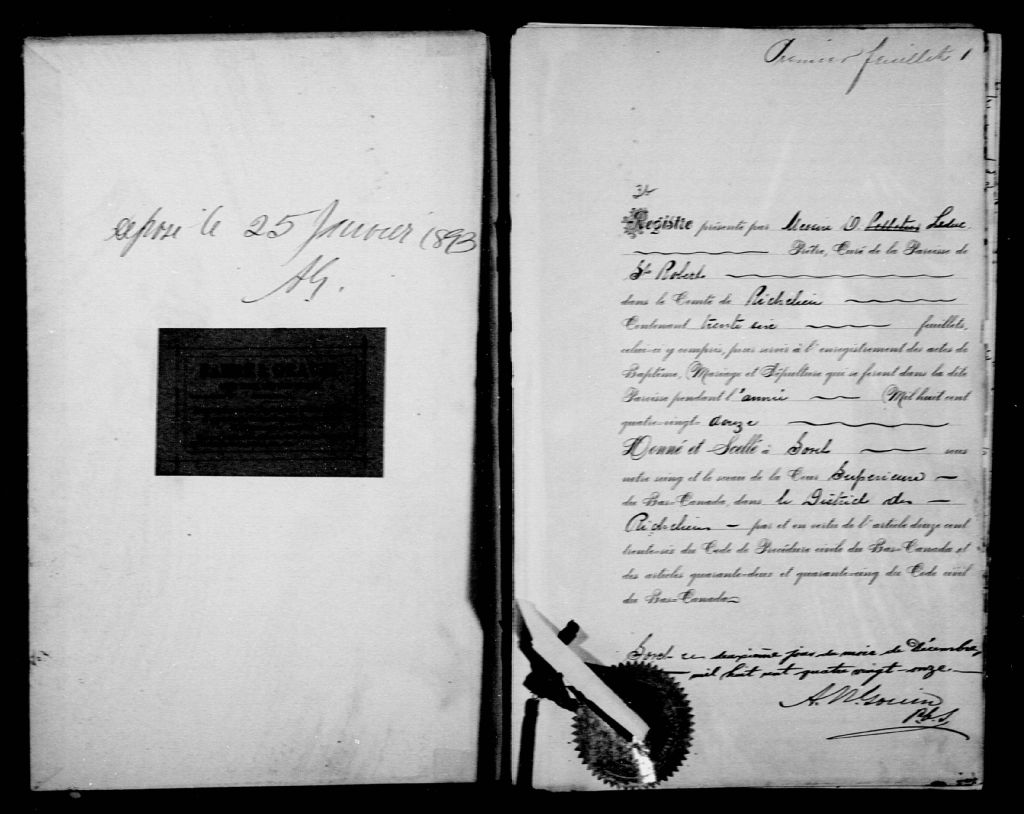 déposé le 25 Janvier 1893
AG.
Premier feuillet 1
Registre présenté par Messire O. Pelletier Leduc
Prêtre, Curé de la Paroisse de
St Robert
dans le Comté de Richelieu
Contenant trente six feuillets,
celui-ci y compris, pour servir à l'enregistrement des actes de
Baptême, Mariage et Sépulture qui se feront dans la dite
Paroisse pendant l'année Mil huit cent
quatre-vingt douze
Donné et Scellé à Sorel sous
notre seing et le sceau de la Cour Supérieure
du Bas-Canada, dans le District de
Richelieu par et en vertu de l'article douze cent
trente-six du Code de Procédure civile du Bas-Canada et
des articles quarante-deux et quarante-cinq du Code civil
du Bas-Canada
Sorel ce deuxième jour du mois de Décembre,
mil huit cent quatre vingt-onze
A. N. Gouin
P.C.S.